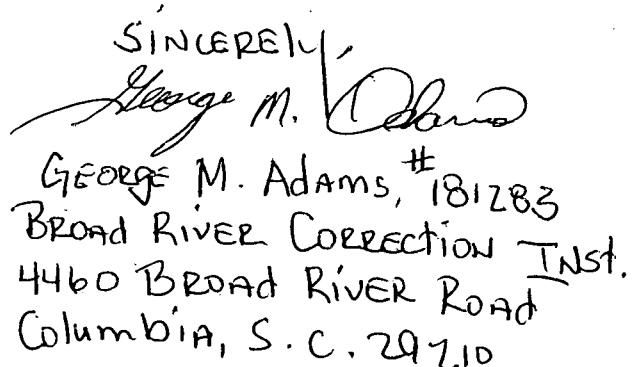 SINCERELY,
George M. Adams
GEORGE M. AdAMS, #181283
BROAd RIVER CORRECtION INSt.
4460 BROAd RIVER ROAd
ColumbIA, S.C. 29210